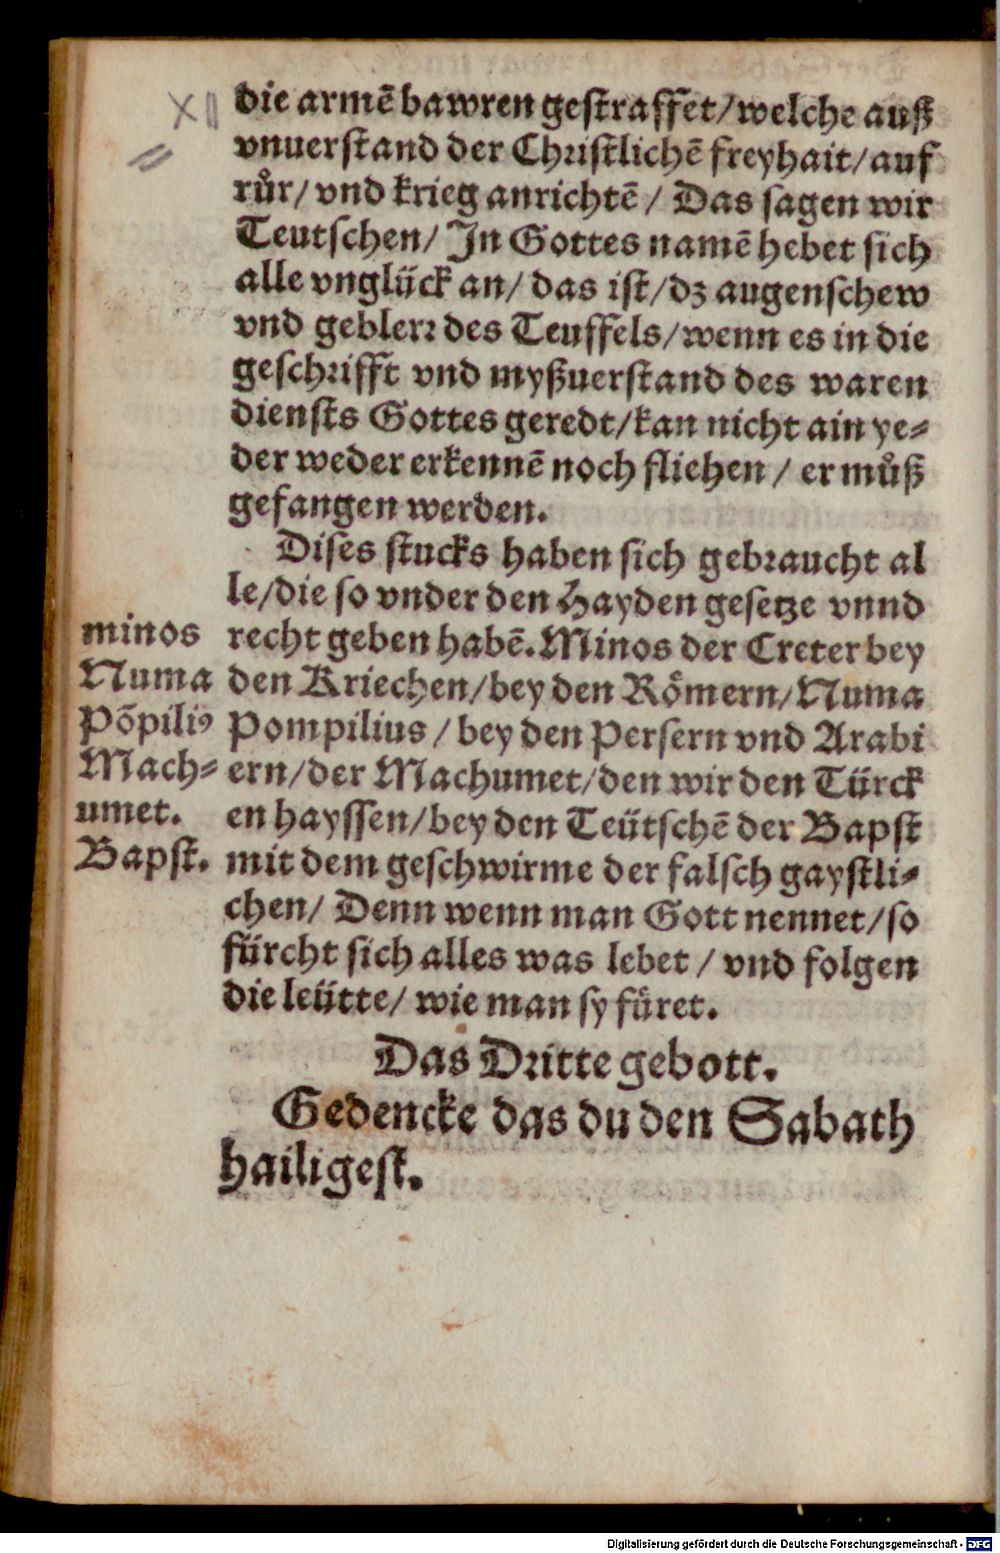 XII
die armē bawren gestraffet/welche auß
vnuerstand der Christlichē freyhait/auf
růr/ vnd krieg anrichtē / Das sagen wir
Teutschen/ In Gottes namē hebet sich
alle vnglück an/ das ist/dz augenschew
vnd geblerr des Teuffels/wenn es in die
geschrifft vnd myßuerstand des waren
diensts Gottes geredt/kan nicht ain ye-
der weder erkennē noch fliehen / er můß
gefangen werden.
Dises stucks haben sich gebraucht al
le/die so vnder den Hayden gesetze vnnd
recht geben habē. Minos der Creter bey
den Kriechen/bey den Römern/Numa
Pompilius / bey den Persern vnd Arabi
ern/der Machumet/den wir den Türck
en hayssen/bey den Teütschē der Bapst
mit dem geschwirme der falsch gaystli-
chen/ Denn wenn man Gott nennet/so
fürcht sich alles was lebet / vnd folgen
die leütte/ wie man sy füret.
minos
Numa
Põpiliꝰ
Mach-
umet.
Bapst.
Das Dritte gebott.
Gedencke das du den Sabath
hailigest.
Digitalisierung gefördert durch die Deutsche Forschungsgemeinschaft - DFG